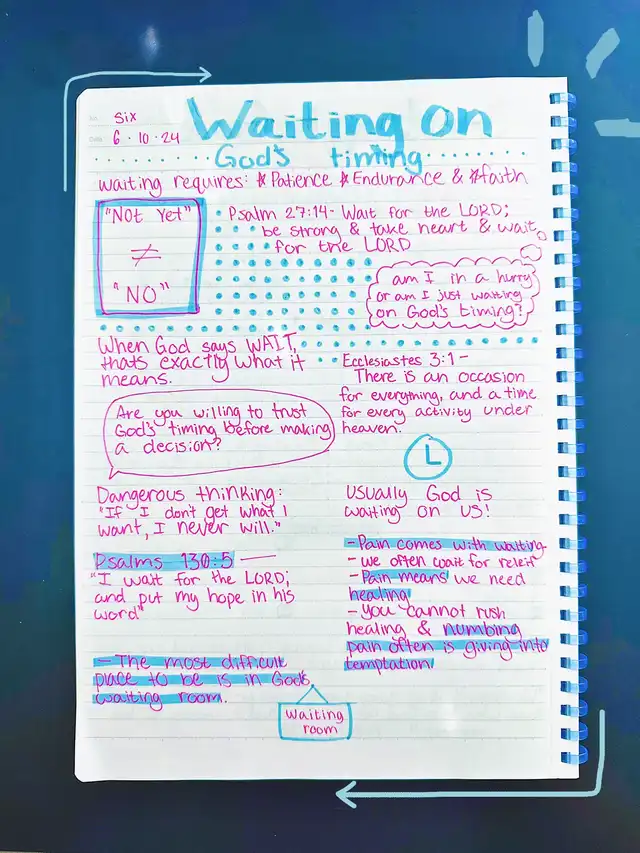 No. Six
Date 6 · 10 · 24
Waiting on
God's timing
waiting requires: *Patience *Endurance & *faith
"Not Yet"
≠
"NO"
Psalm 27:14- Wait for the LORD;
be strong & take heart & wait
for the LORD
am I in a hurry
or am I just waiting
on God's timing?
When God says WAIT,
thats exactly what it
means.
Ecclesiastes 3:1-
There is an occasion
for everything, and a time
for every activity under
heaven.
Are you willing to trust
God's timing before making
a decision?
Dangerous thinking:
"If I don't get what I
want, I never will."
Usually God is
waiting on us!
Psalms 130:5 —
"I wait for the LORD;
and put my hope in his
word"
- Pain comes with waiting
- we often wait for releif
- Pain means we need
healing
- You cannot rush
healing & numbing
pain often is giving into
temptation
- The most difficult
place to be is in God's
waiting room.
Waiting
room